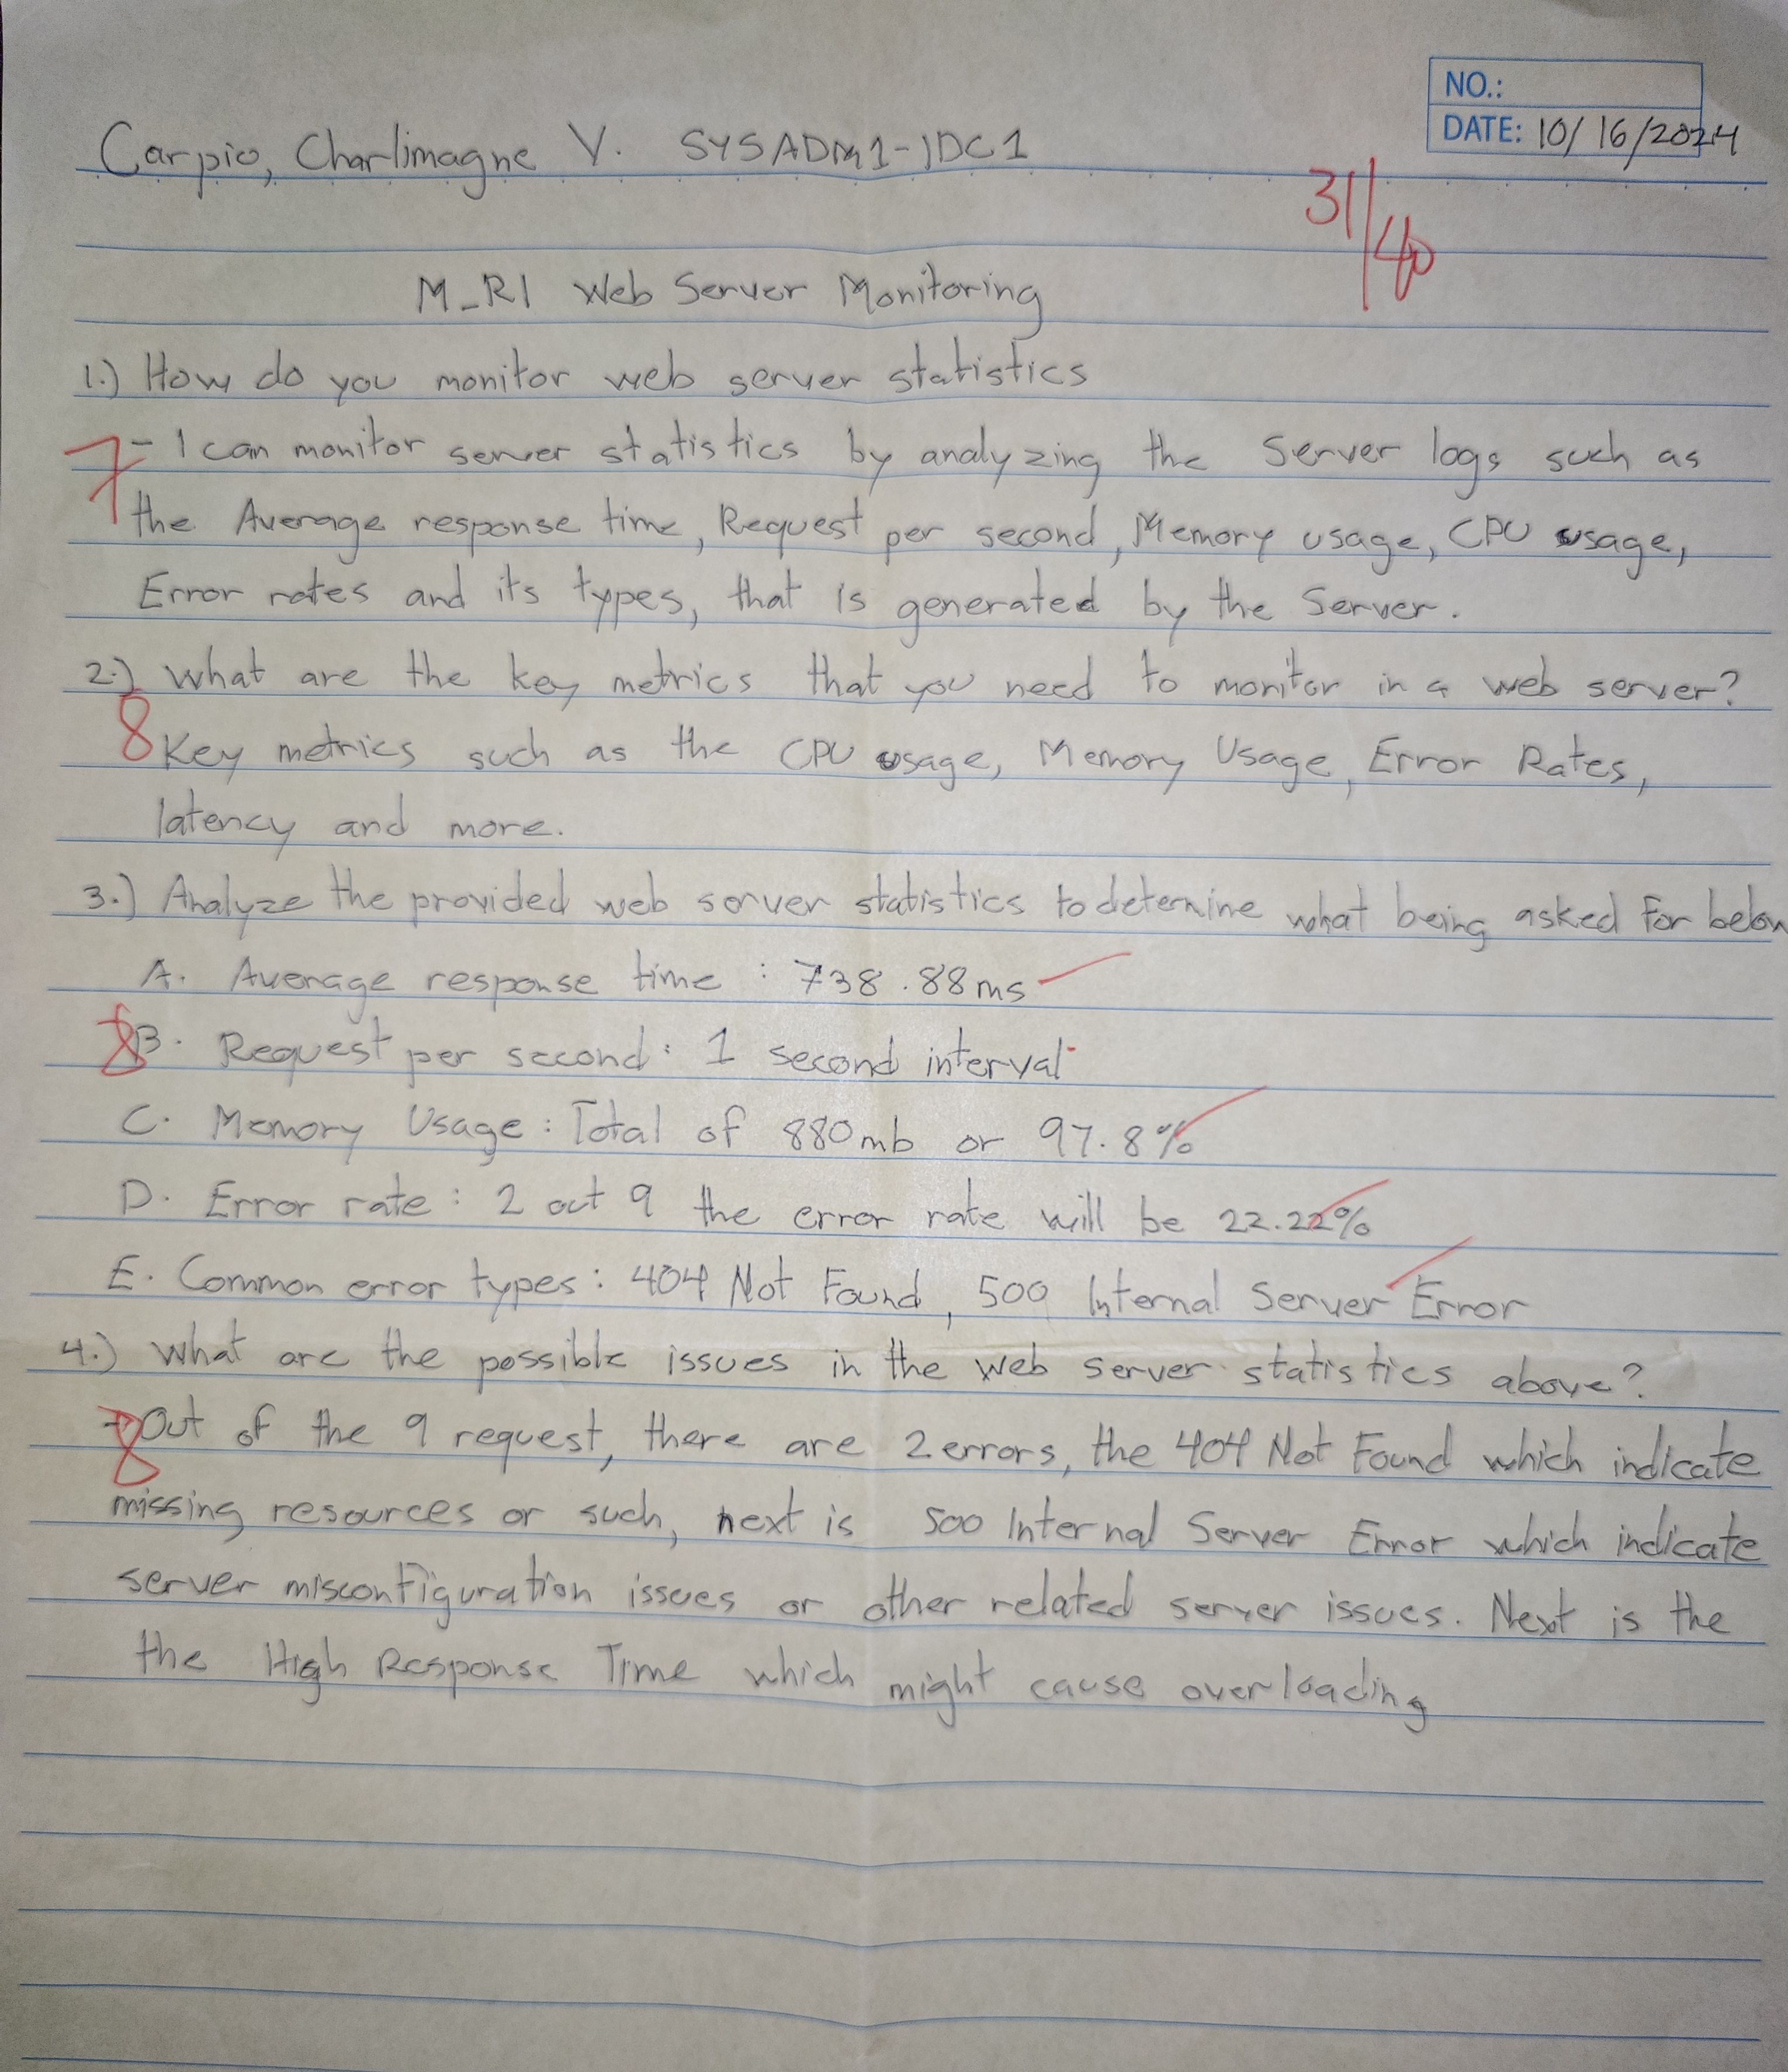 NO.:
DATE: 10/16/2024
Carpio, Charlimagne V. SYSADM1-IDC1
31/40
M_R1 Web Server Monitoring
1.) How do you monitor web server statistics
7 - I can monitor server statistics by analyzing the Server logs such as
the Average response time, Request per second, Memory usage, CPU usage,
Error rates and its types, that is generated by the Server.
2.) What are the key metrics that you need to monitor in a web server?
8 Key metrics such as the CPU usage, Memory Usage, Error Rates,
latency and more.
3.) Analyze the provided web server statistics to determine what being asked for below
A. Average response time : 738.88ms
8 B. Request per second: 1 second interval
C. Memory Usage: Total of 880mb or 97.8%
D. Error rate: 2 out 9 the error rate will be 22.22%
E. Common error types: 404 Not Found, 500 Internal Server Error
4.) What are the possible issues in the web server statistics above?
8 - Out of the 9 request, there are 2 errors, the 404 Not Found which indicate
missing resources or such, next is 500 Internal Server Error which indicate
server misconfiguration issues or other related server issues. Next is the
the High Response Time which might cause overloading